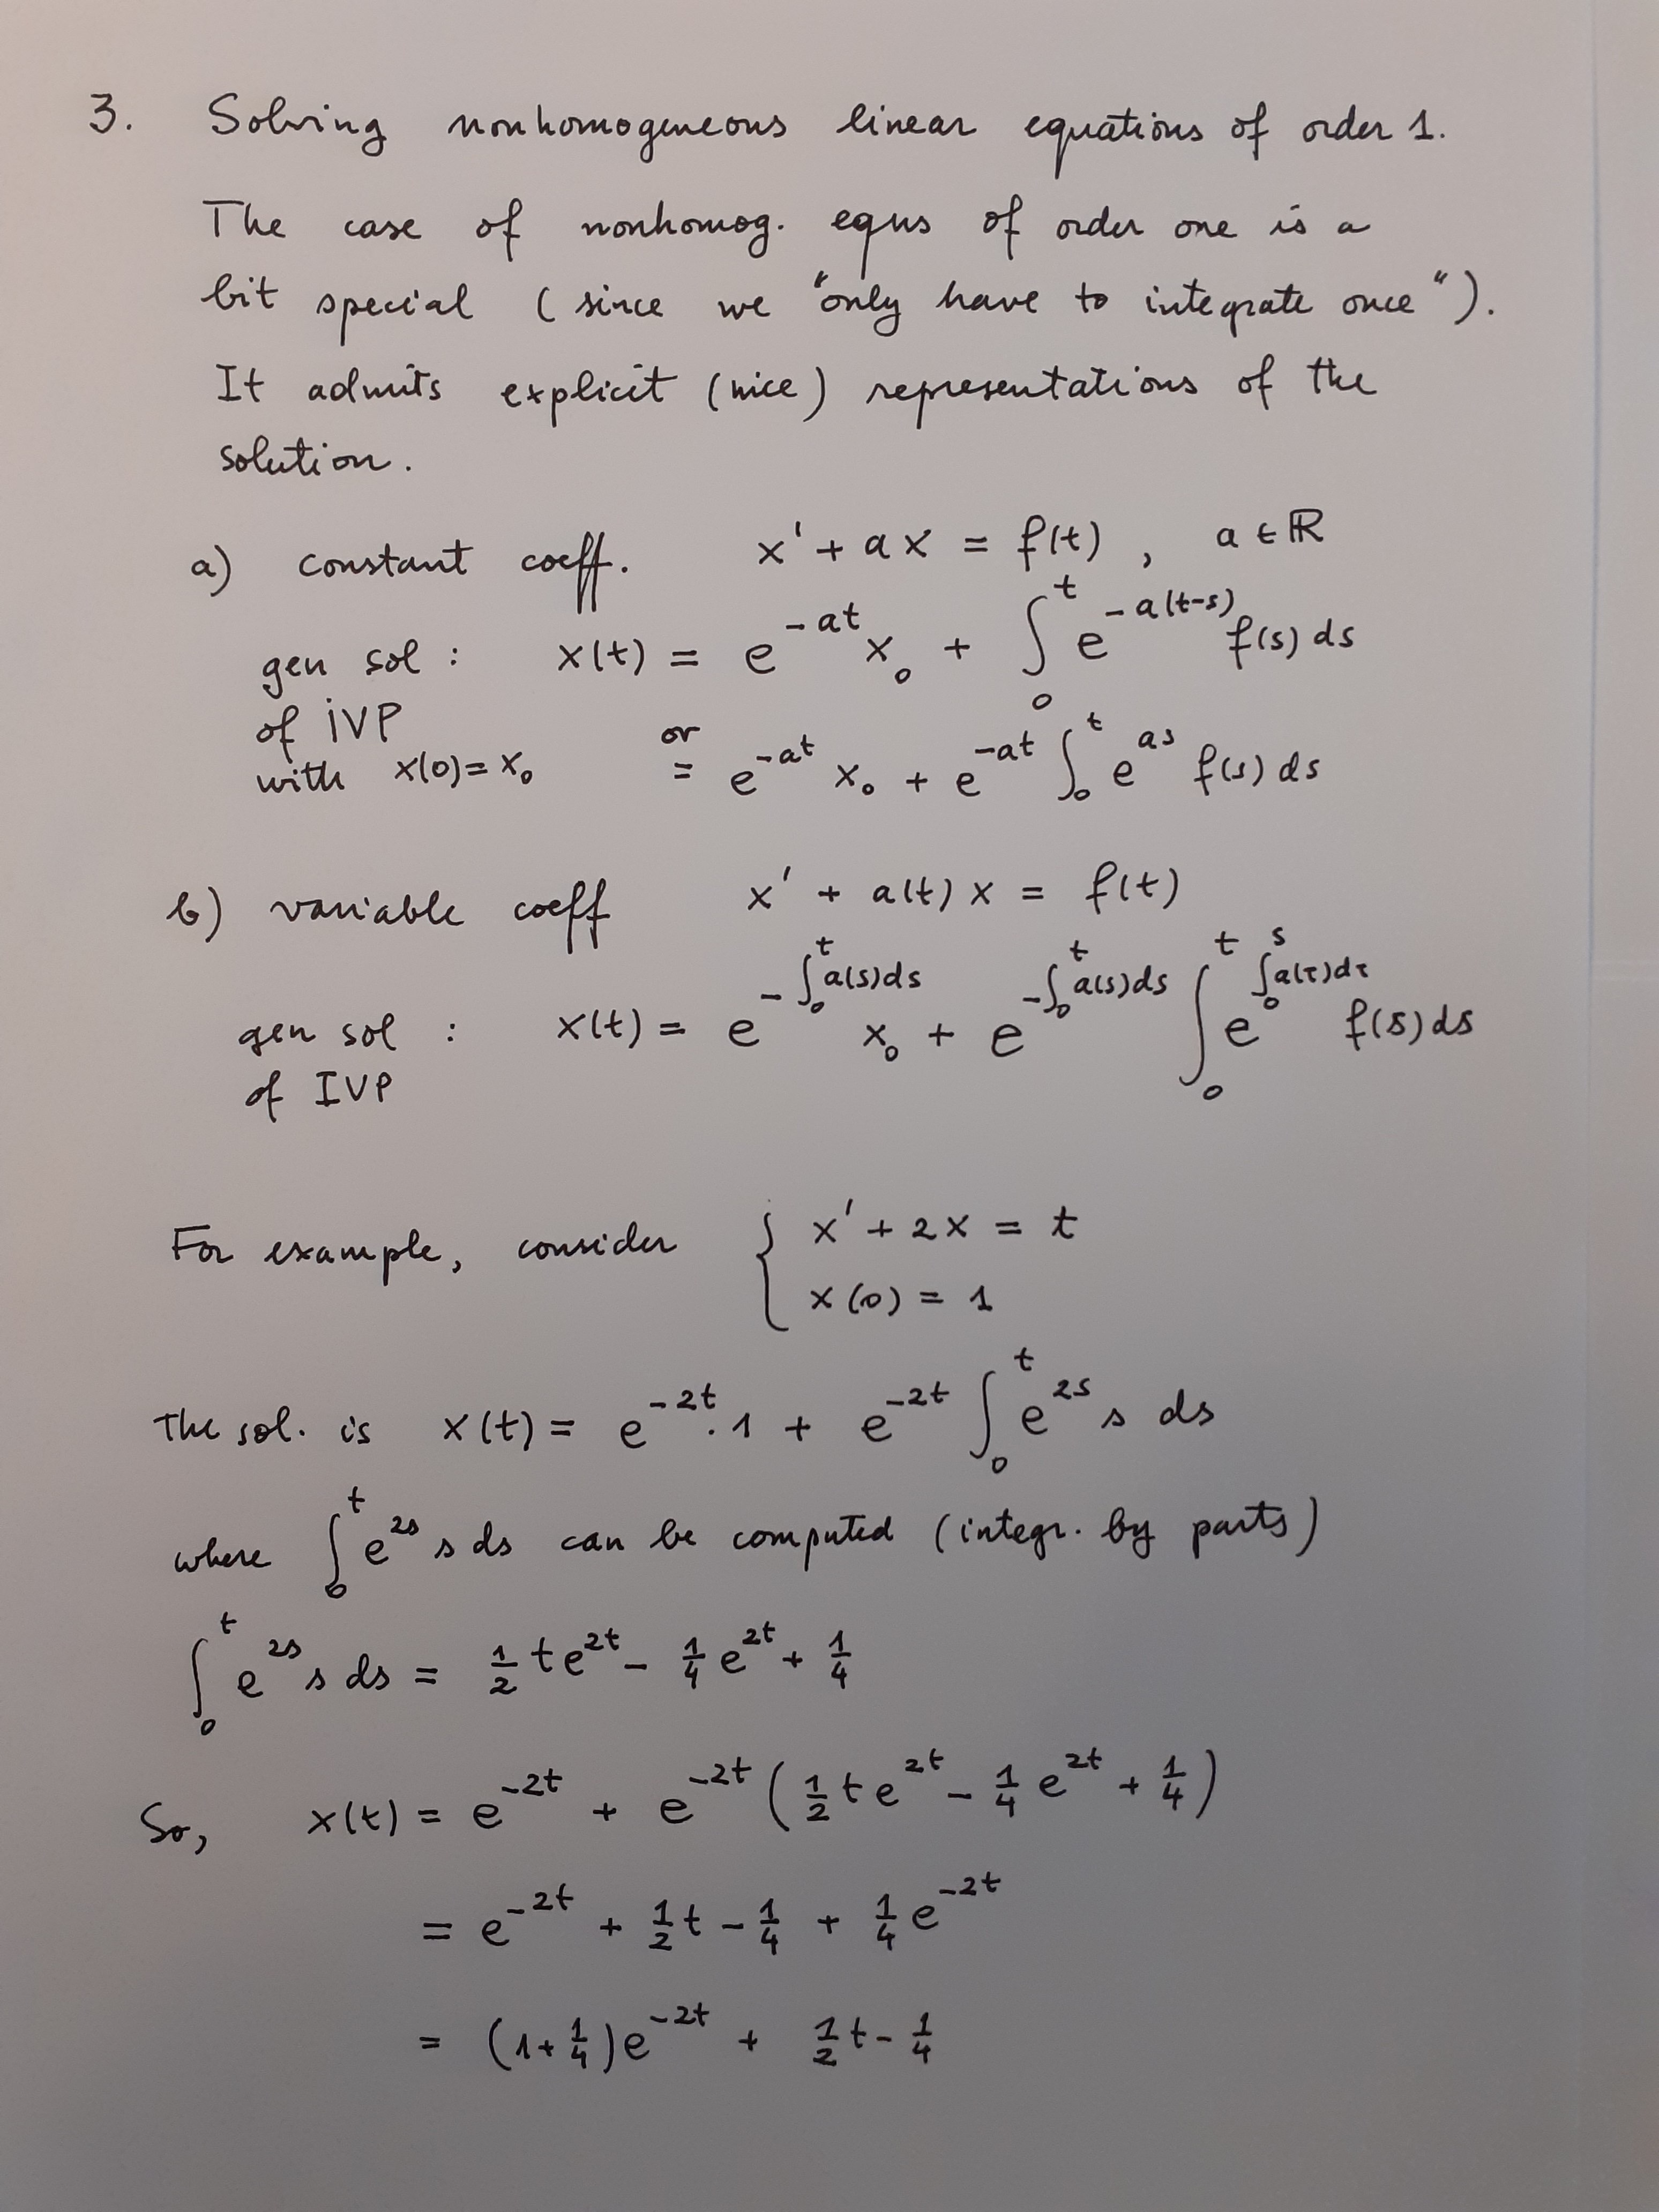 3. Solving nonhomogeneous linear equations of order 1.
The case of nonhomog. equs of order one is a
bit special (since we "only have to integrate once").
It admits explicit (nice) representations of the
solution.
a) constant coeff. x' + ax = f(t), a ∈ ℝ
gen sol: x(t) = e^{-at} x_0 + ∫_0^t e^{-a(t-s)} f(s) ds
of IVP
with x(0) = x_0 or = e^{-at} x_0 + e^{-at} ∫_0^t e^{as} f(s) ds
b) variable coeff x' + a(t) x = f(t)
gen sol : x(t) = e^{-∫_0^t a(s)ds} x_0 + e^{-∫_0^t a(s)ds} ∫_0^t e^{∫_0^s a(τ)dτ} f(s) ds
of IVP
For example, consider { x' + 2x = t
x(0) = 1
The sol. is x(t) = e^{-2t} · 1 + e^{-2t} ∫_0^t e^{2s} s ds
where ∫_0^t e^{2s} s ds can be computed (integr. by parts)
∫_0^t e^{2s} s ds = 1/2 t e^{2t} - 1/4 e^{2t} + 1/4
So, x(t) = e^{-2t} + e^{-2t} (1/2 t e^{2t} - 1/4 e^{2t} + 1/4)
= e^{-2t} + 1/2 t - 1/4 + 1/4 e^{-2t}
= (1 + 1/4) e^{-2t} + 1/2 t - 1/4